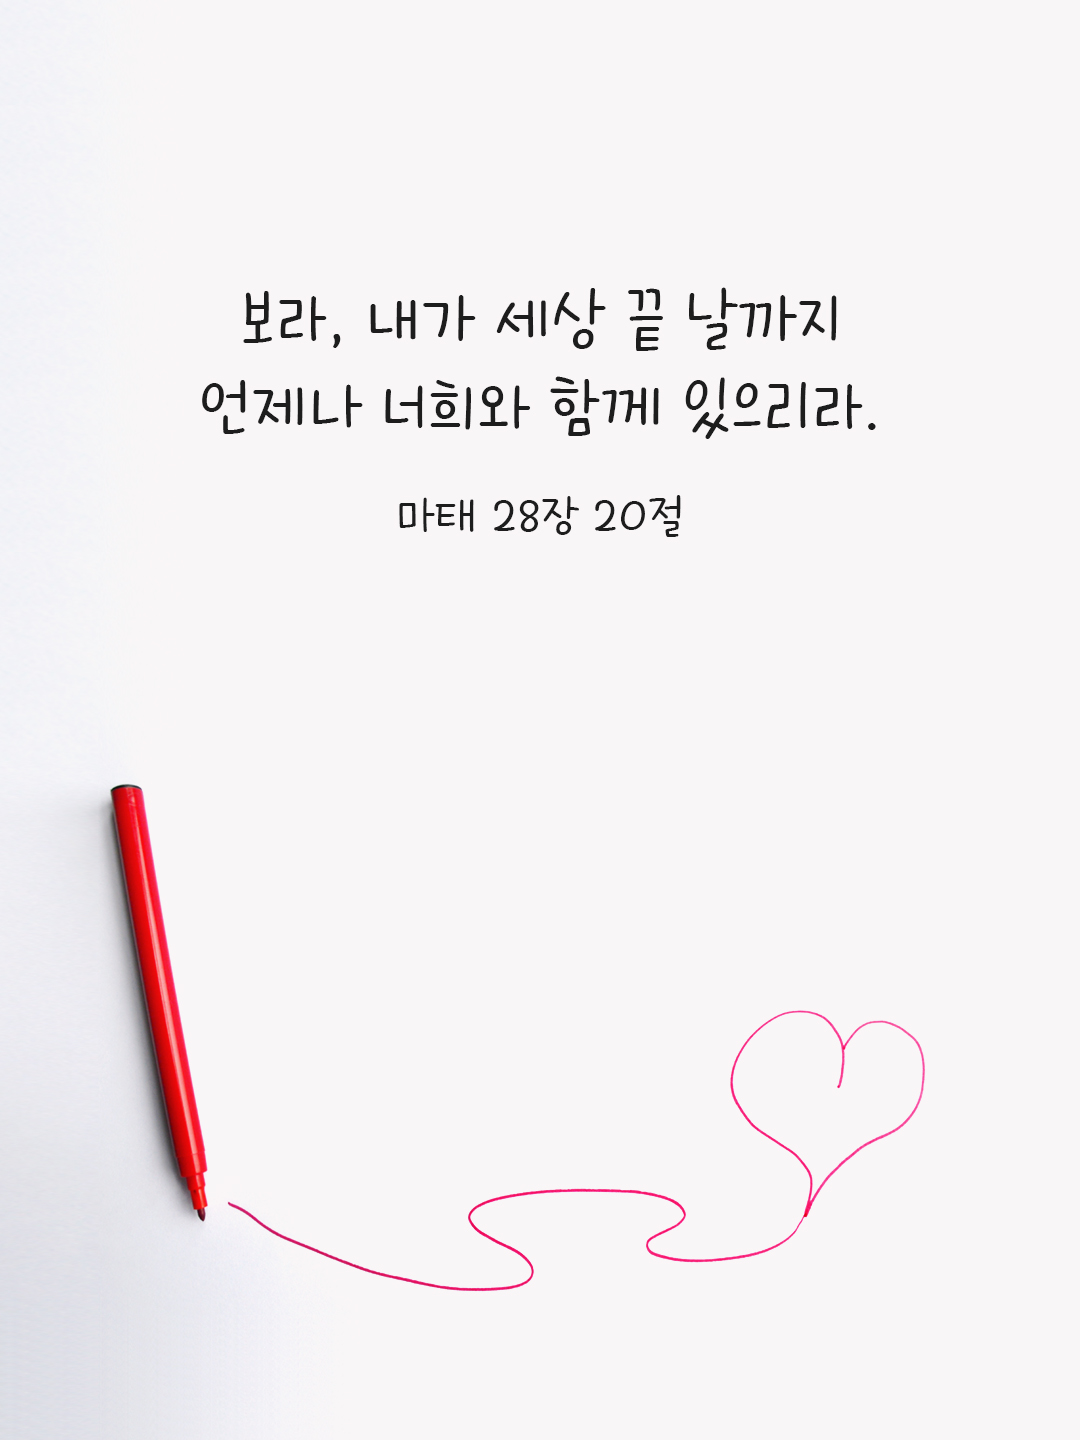 보라, 내가 세상 끝 날까지
언제나 너희와 함께 있으리라.
마태 28장 20절